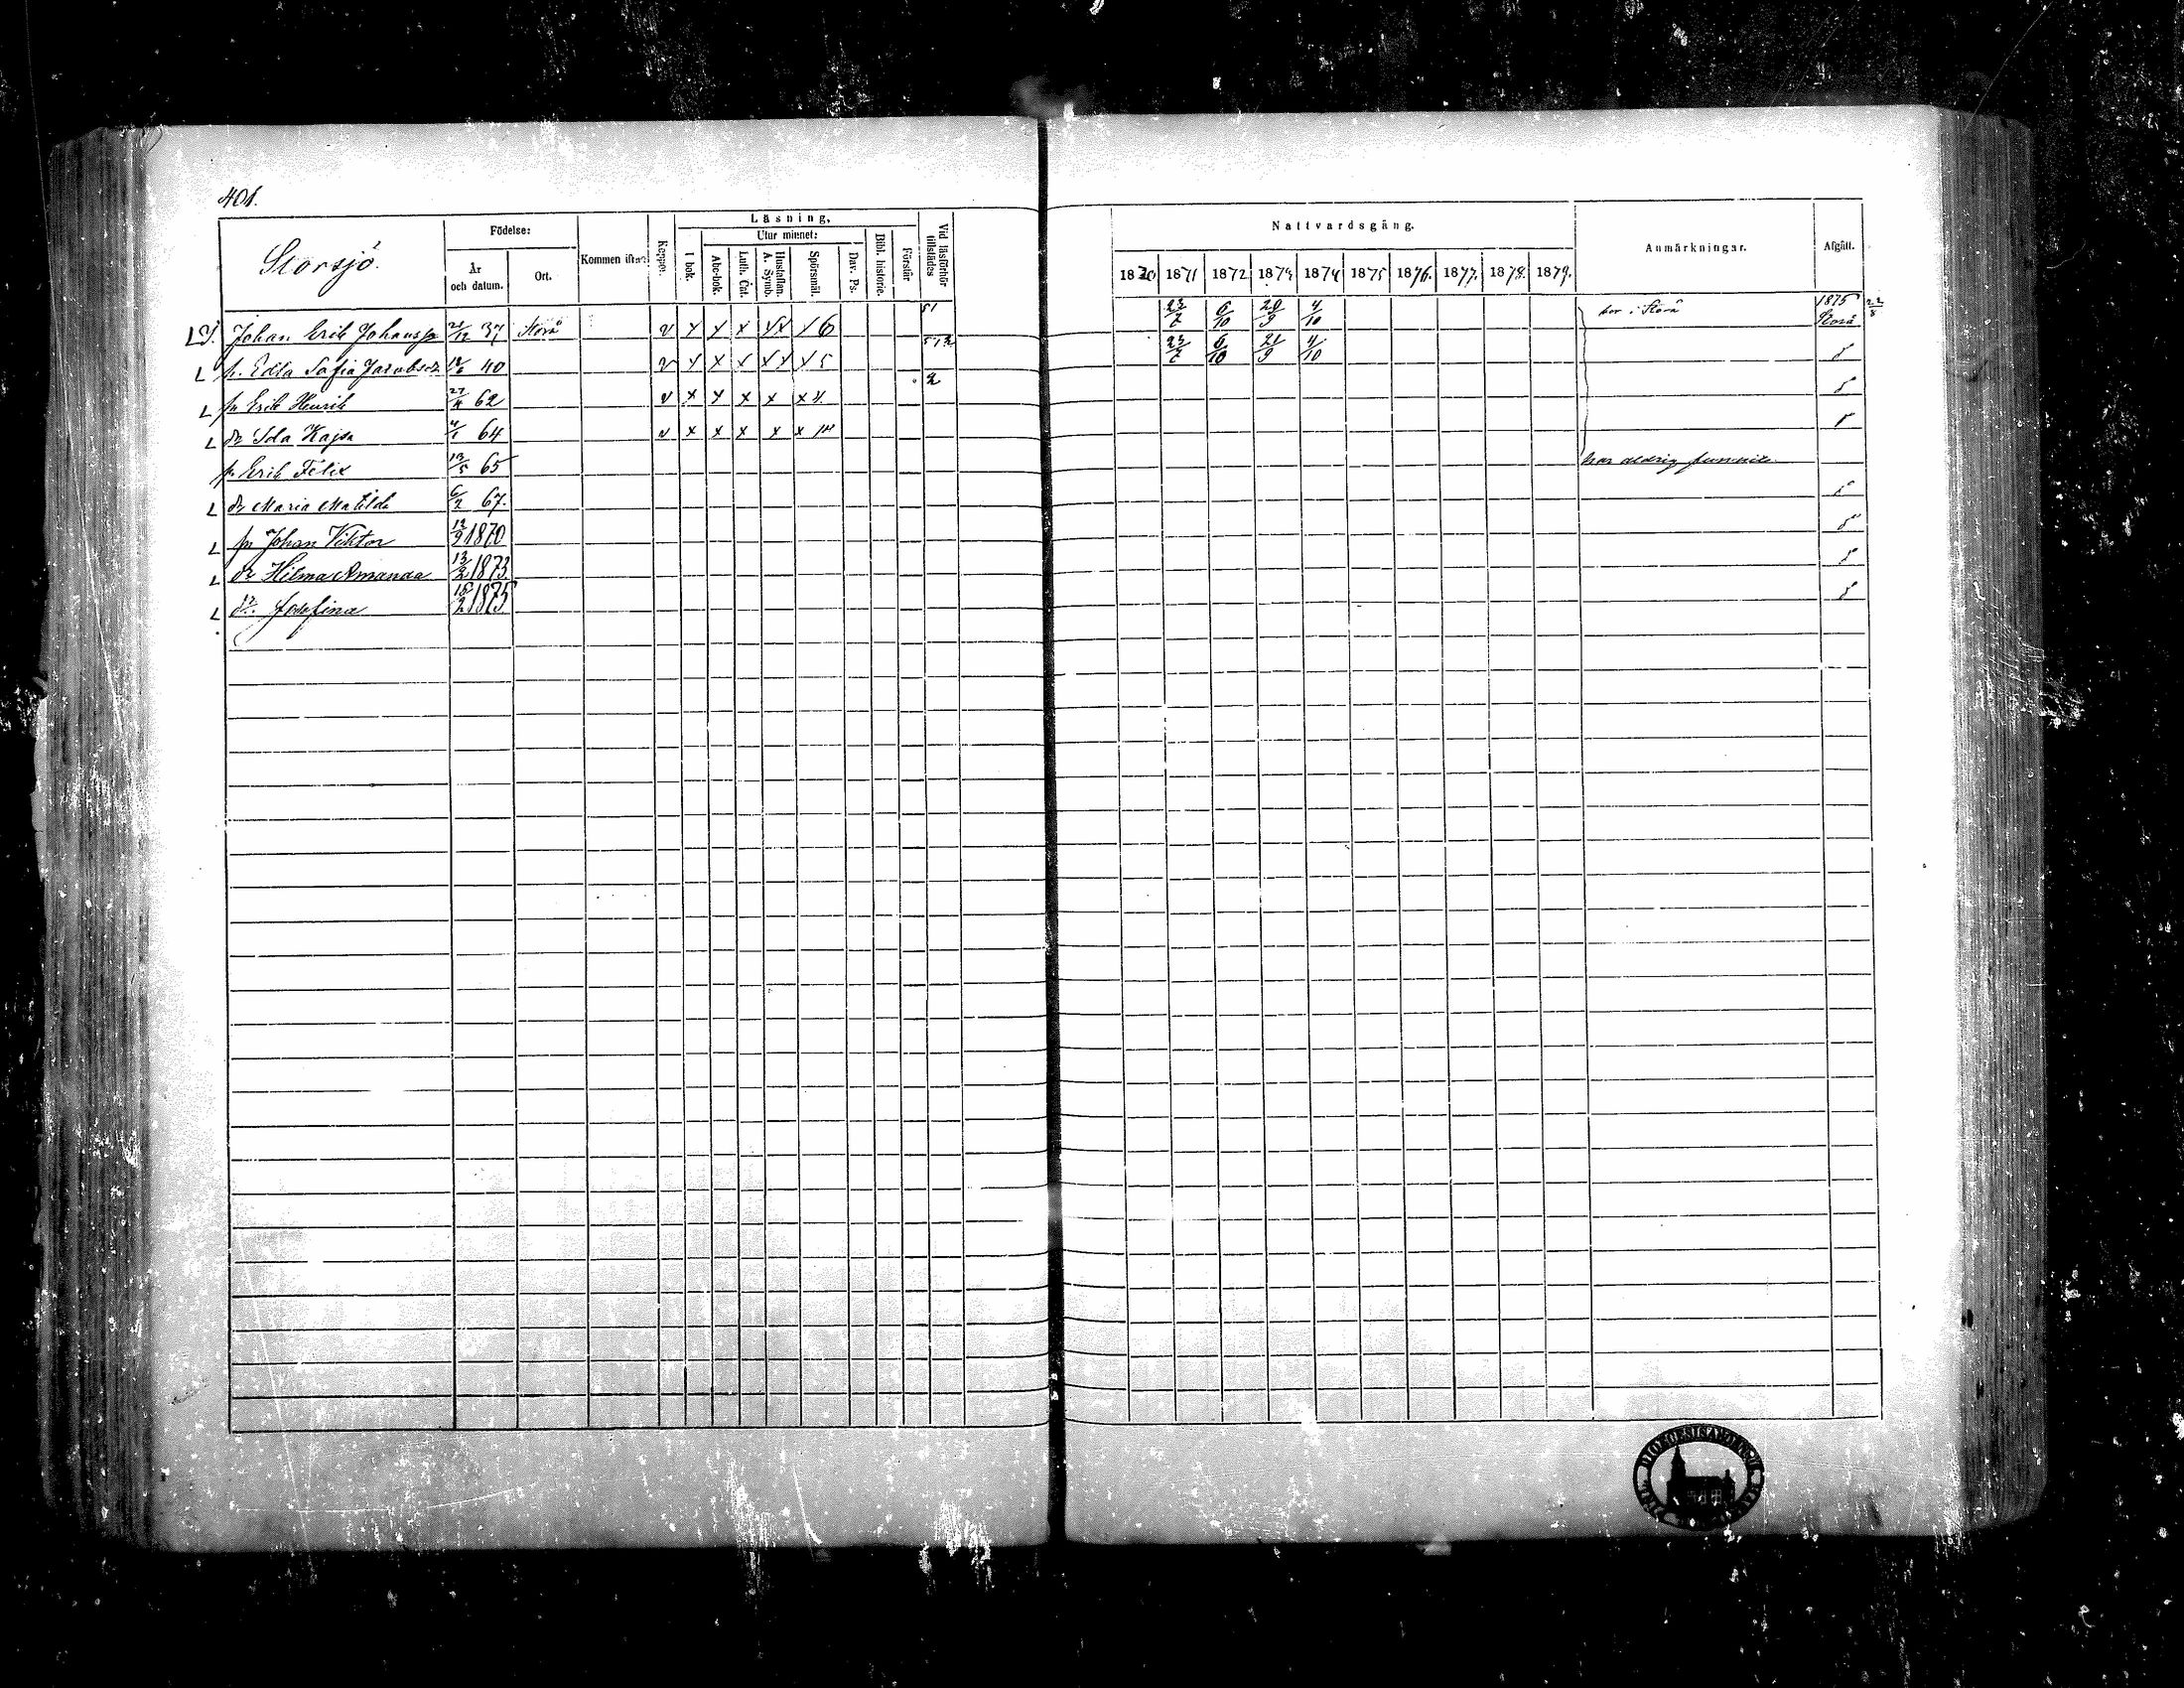 401.
Storsjö.
Födelse:
År och datum.
Ort.
Kommen ifrån
Koppor.
Läsning,
I bok.
Utur minnet:
Abc-bok.
Luth. Cat.
Hustaflan. A. Symb.
Spörsmål.
Dav. Ps.
Bibl. historie.
Förstår
Vid läsförhör tillstädes
Nattvardsgång.
1870 1871 1872 1873 1874 1875 1876. 1877. 1878. 1879.
Anmärkningar.
Afgått.
Johan Erik Johansson 21/12 37 Storå v x x x xx x 6 51 23/7 6/10 28/9 4/10 bor i Storå 1875 Storå 22/8
h. Edla Safia Jacobsdr 40 v x x x xx x 5 23/7 6/10 21/9 4/10
sn Erik Henrik 62 v x x x x x 4 2
dr Ida Kajsa 64 v x x x x x
sn Erik Felix 13/5 65 har aldrig funnits
dr Maria Matilda 6/2 67.
sn Johan Viktor 12/9 1870
dr Hilma Amanda 13/2 1873
dr. Josefina 15/2 1875